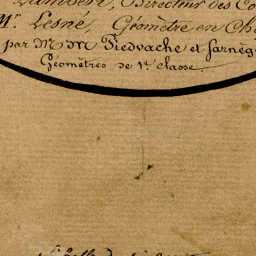 Directeur des Co
Mr. Lesne, Géomètre en Ch
par MrM Piedvache et Carnég
Géomètres de 1e. classe.